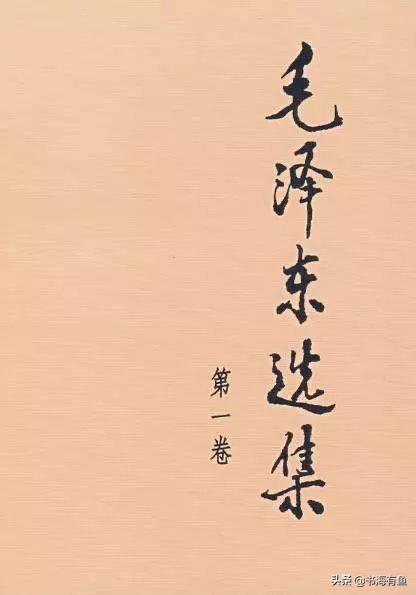 毛泽东选集
第一卷
头条 @书海有鱼